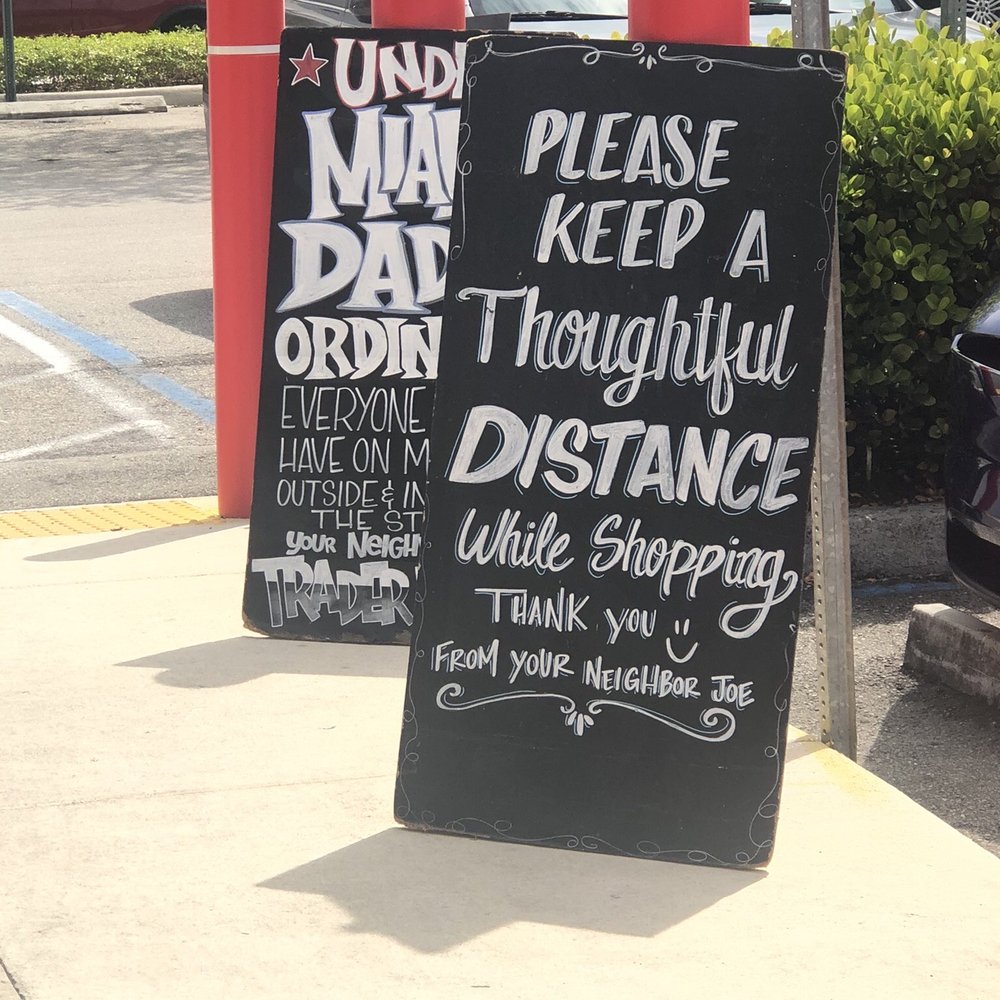 MIA
DAD
ORDIN
EVERYONE
HAVE ON M
OUTSIDE & IN
THE ST
YOUR NEIGH
TRADER
PLEASE
KEEP A
Thoughtful
DISTANCE
While Shopping
THANK YOU
FROM YOUR NEIGHBOR JOE